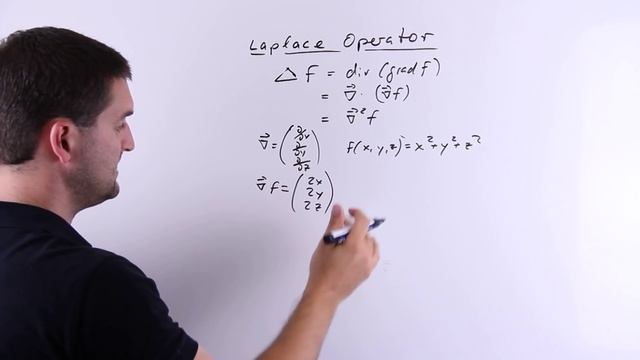 Laplace Operator
△ f = div (grad f)
= ∇⃗ · (∇⃗ f)
= ∇⃗² f
∇⃗ = (∂/∂x ∂/∂y ∂/∂z) f(x,y,z) = x² + y² + z²
∇⃗ f = (2x 2y 2z)